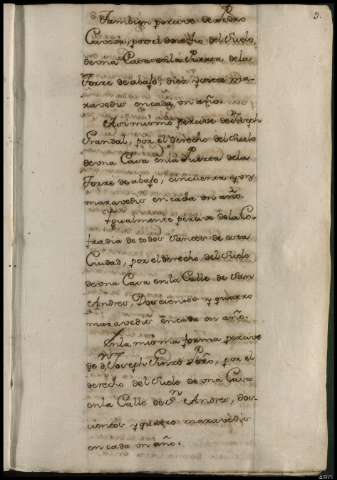 9.
Tambien percive de Pedro
Cancon, por el derecho del Suelo
de una Casa en la Puerta de la
Torre de abajo, diez y nueve ma-
ravedis en cada un año.
Asimismo percive de
Grandal, por el derecho del Suelo
de una Casa en la Puerta de la
Torre de abajo, cinquenta y
maravedis en cada un año.
Igualmente percive de la Co-
fradia de todos Santos de esta
Ciudad, por el derecho del Suelo
de una Casa en la Calle de San
Andres, Doscientos y quatro
maravedis en cada un año.
En la misma forma percive
de Dn. Joseph, por el
derecho del Suelo de una Casa
en la Calle de Sn. Andres, dos-
cientos y quatro maravedis
en cada un año.